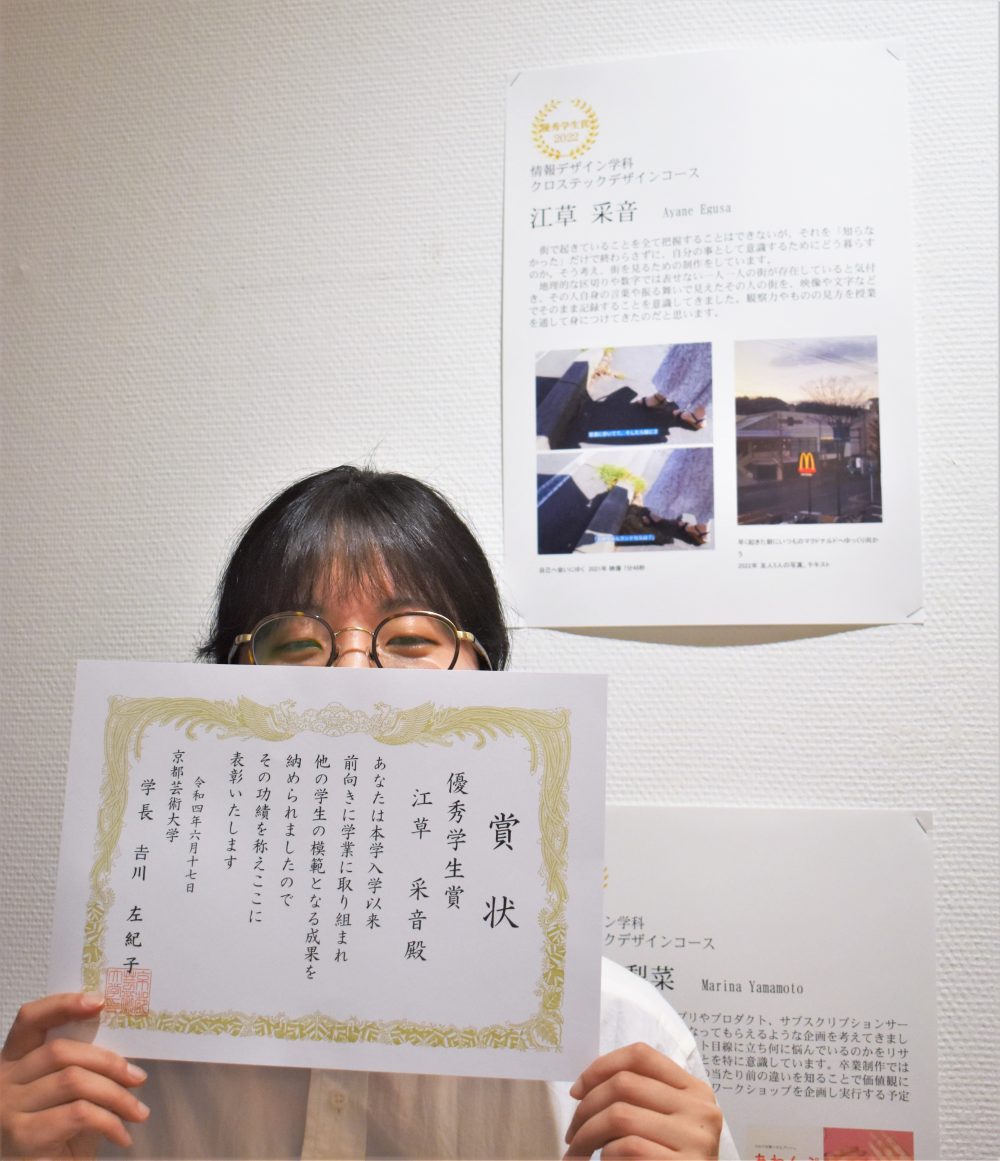 優秀学生賞
2022
情報デザイン学科
クロステックデザインコース
江草 采音 Ayane Egusa
街で起きていることを全て把握することはできないが、それを「知らな
かった」だけで終わらさずに、自分の事として意識するためにどう暮らす
のか。そう考え、街を見るための制作をしています。
地理的な区切りや数字では表せない一人一人の街が存在していると気付
き、その人自身の言葉や振る舞いで見えたその人の街を、映像や文字など
でそのまま記録することを意識してきました。観察力やものの見方を授業
を通して身につけてきたのだと思います。
自己へ会いにゆく 2021年 映像 7分48秒
早く起きた朝にいつものマクドナルドへゆっくり向か
う
2022年 友人5人の写真、テキスト
賞状
優秀学生賞
江草 采音殿
あなたは本学入学以来
前向きに学業に取り組まれ
他の学生の模範となる成果を
納められましたので
その功績を称えここに
表彰いたします
令和四年六月十七日
京都芸術大学
学長 吉川 左紀子
ン学科
クデザインコース
梨菜 Marina Yamamoto
プリやプロダクト、サブスクリプションサー
なってもらえるような企画を考えてきまし
ト目線に立ち何に悩んでいるのかをリサ
とを特に意識しています。卒業制作では
の当たり前の違いを知ることで価値観に
ワークショップを企画し実行する予定